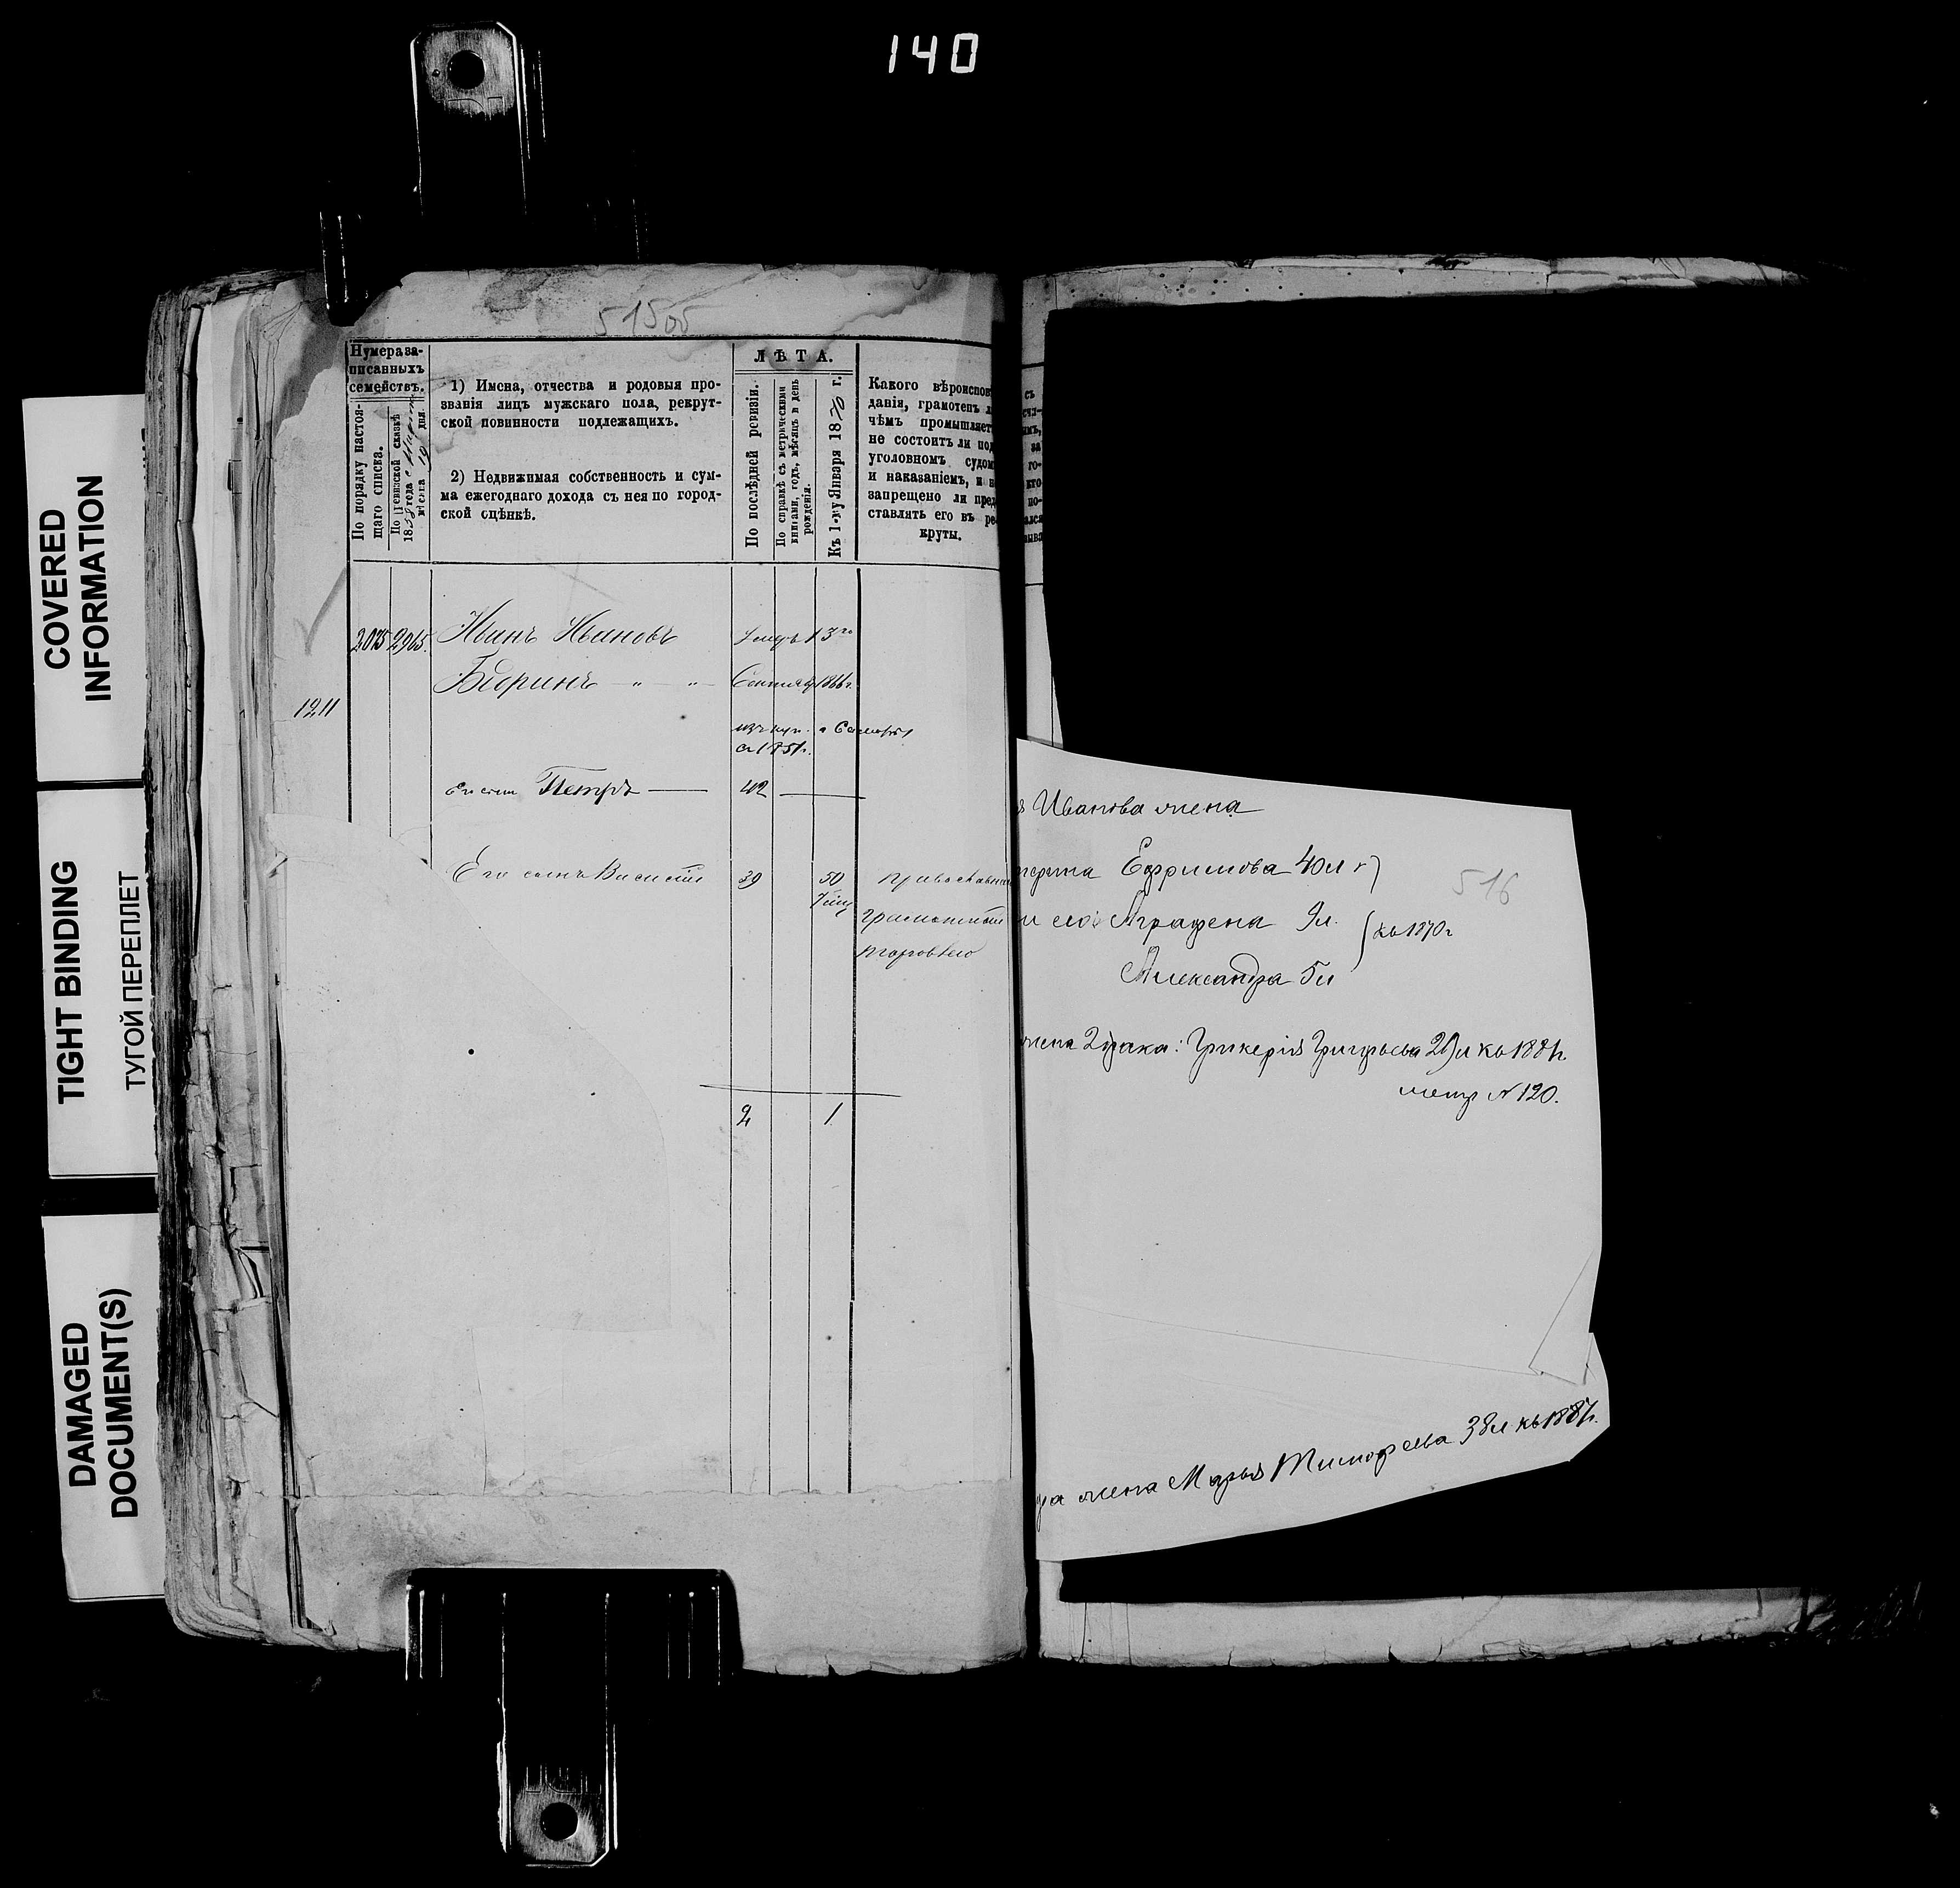 140
COVERED
INFORMATION
TIGHT BINDING
ТУГОЙ ПЕРЕПЛЕТ
DAMAGED
DOCUMENT(S)
515об
Нумера за-
писанныхъ
семействъ.
По порядку настоя-
щаго списка.
По ревизской сказкѣ
1858 года
мѣсяца 19 дня.
1) Имена, отчества и родовыя про-
званія лицъ мужскаго пола, рекрут-
ской повинности подлежащихъ.
2) Недвижимая собственность и сум-
ма ежегоднаго дохода съ нея по город-
ской оцѣнкѣ.
ЛѢТА.
По послѣдней ревизіи.
По справкѣ съ метрическими
книгами, годъ, мѣсяцъ и день
рожденія.
Къ 1-му Января 1870 г.
Какого вѣроиспов
данія, грамотенъ л
чѣмъ промышляет
не состоитъ ли под
уголовномъ судом
и наказаніемъ, и н
запрещено ли пред
ставлять его въ ре
круты.
2075 2965. Иванъ Ивановъ умеръ 13го
Бюринъ — " — " — Сентяб 1866 г.
1211
изъ куп. с
съ 1851 г.
Его сынъ Петръ — 42 —
Его сынъ Василій 39 50 православный
грамотный
торговлею
2 1
Иванова жена
Ефимова 40 л
516
Аграфена 9 л.
къ 1870 г
Александра 5 л
жена 2 брака: Гликерія Григорьева 29 л къ 1881 г.
метр № 120.
жена Марья Тимофеева 38 л къ 1887 г.